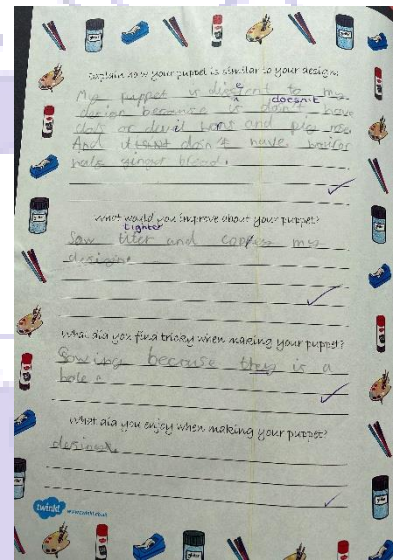 Explain how your puppet is similar to your design?
My puppet is different to my
doesn't
design because it don't have
clots or devil horns and pig nose
And it don't have
hafe ginger
What would you improve about your puppet?
tighter
Sow titer and my
design.
What did you find tricky when making your puppet?
Sowing because is a
hole.
What did you enjoy when making your puppet?
twinkl